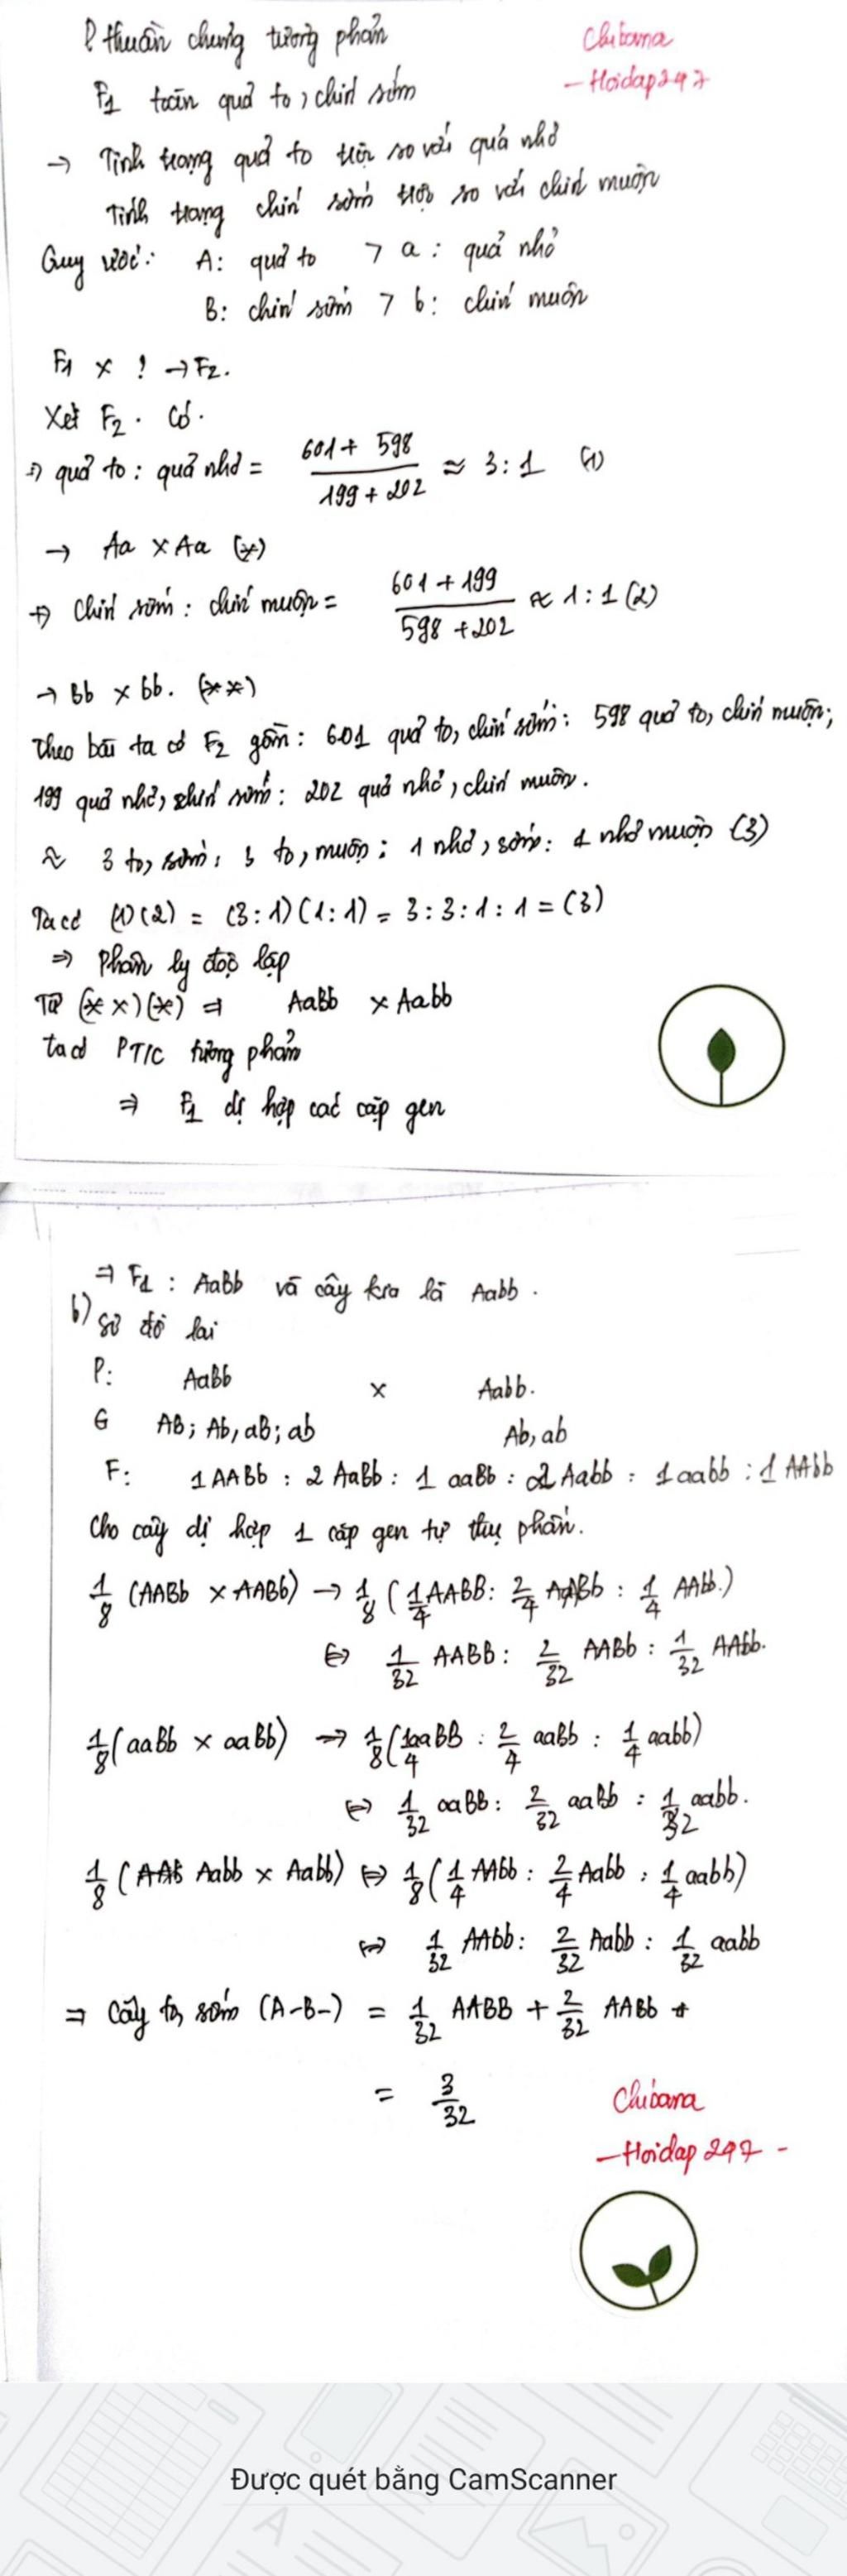 P thuần chủng tương phản
Chibana
- Hoidap247
F1 toàn quả to, chín sớm
→ Tính trạng quả to trội so với quả nhỏ
Tính trạng chín sớm trội so với chín muộn
Quy ước: A: quả to > a: quả nhỏ
B: chín sớm > b: chín muộn
F1 x ! → F2.
Xét F2. Có.
+) quả to : quả nhỏ = (601 + 598)/(199 + 202) ≈ 3:1 (1)
→ Aa x Aa (*)
+) Chín sớm : chín muộn = (601 + 199)/(598 + 202) ≈ 1:1 (2)
→ Bb x bb. (**)
Theo bài ta có F2 gồm: 601 quả to, chín sớm: 598 quả to, chín muộn;
199 quả nhỏ, chín sớm: 202 quả nhỏ, chín muộn.
≈ 3 to, sớm: 3 to, muộn: 1 nhỏ, sớm: 1 nhỏ muộn (3)
Ta có (1)(2) = (3:1)(1:1) = 3:3:1:1 = (3)
⇒ Phân ly độc lập
Từ (**)(*) ⇒ AaBb x Aabb
ta có PT/C tương phản
⇒ F1 dị hợp các cặp gen
⇒ F1: AaBb và cây kia là Aabb.
b) Sơ đồ lai
P: AaBb x Aabb.
G AB; Ab, aB; ab Ab, ab
F: 1AABb : 2AaBb : 1 aaBb : 2 Aabb : 1aabb : 1 AAbb
Cho cây dị hợp 1 cặp gen tự thụ phấn.
1/8 (AABb x AABb) → 1/8 (1/4 AABB: 2/4 AABb : 1/4 AAbb.)
⇔ 1/32 AABB: 2/32 AABb : 1/32 AAbb.
1/8 (aaBb x aaBb) → 1/8 (1/4 aaBB : 2/4 aaBb : 1/4 aabb)
⇔ 1/32 aaBB: 2/32 aaBb : 1/32 aabb.
1/8 (Aabb x Aabb) ⇔ 1/8 (1/4 AAbb : 2/4 Aabb : 1/4 aabb)
⇔ 1/32 AAbb: 2/32 Aabb : 1/32 aabb
⇒ Cây to, sớm (A-B-) = 1/32 AABB + 2/32 AABb +
= 3/32
Chibana
- Hoidap 247 -
Được quét bằng CamScanner